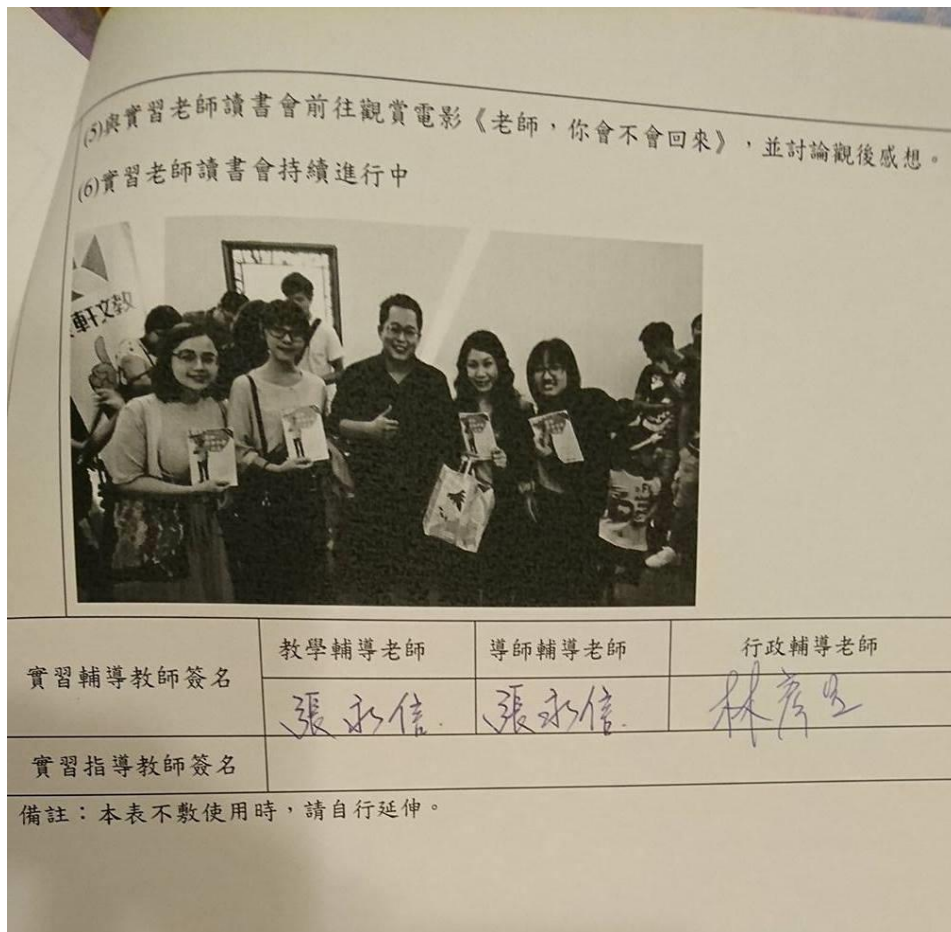 (5)與實習老師讀書會前往觀賞電影《老師，你會不會回來》，並討論觀後感想。
(6)實習老師讀書會持續進行中
軒文教
實習輔導教師簽名
教學輔導老師
導師輔導老師
行政輔導老師
張永信.
張永信.
林彥
實習指導教師簽名
備註：本表不敷使用時，請自行延伸。